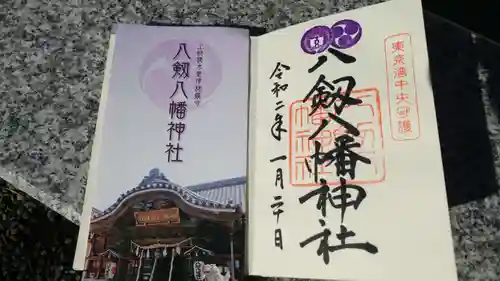 上総國木更津総鎮守
八剱八幡神社
東京湾中央守護
八剱八幡神社
令和二年 一月二十日